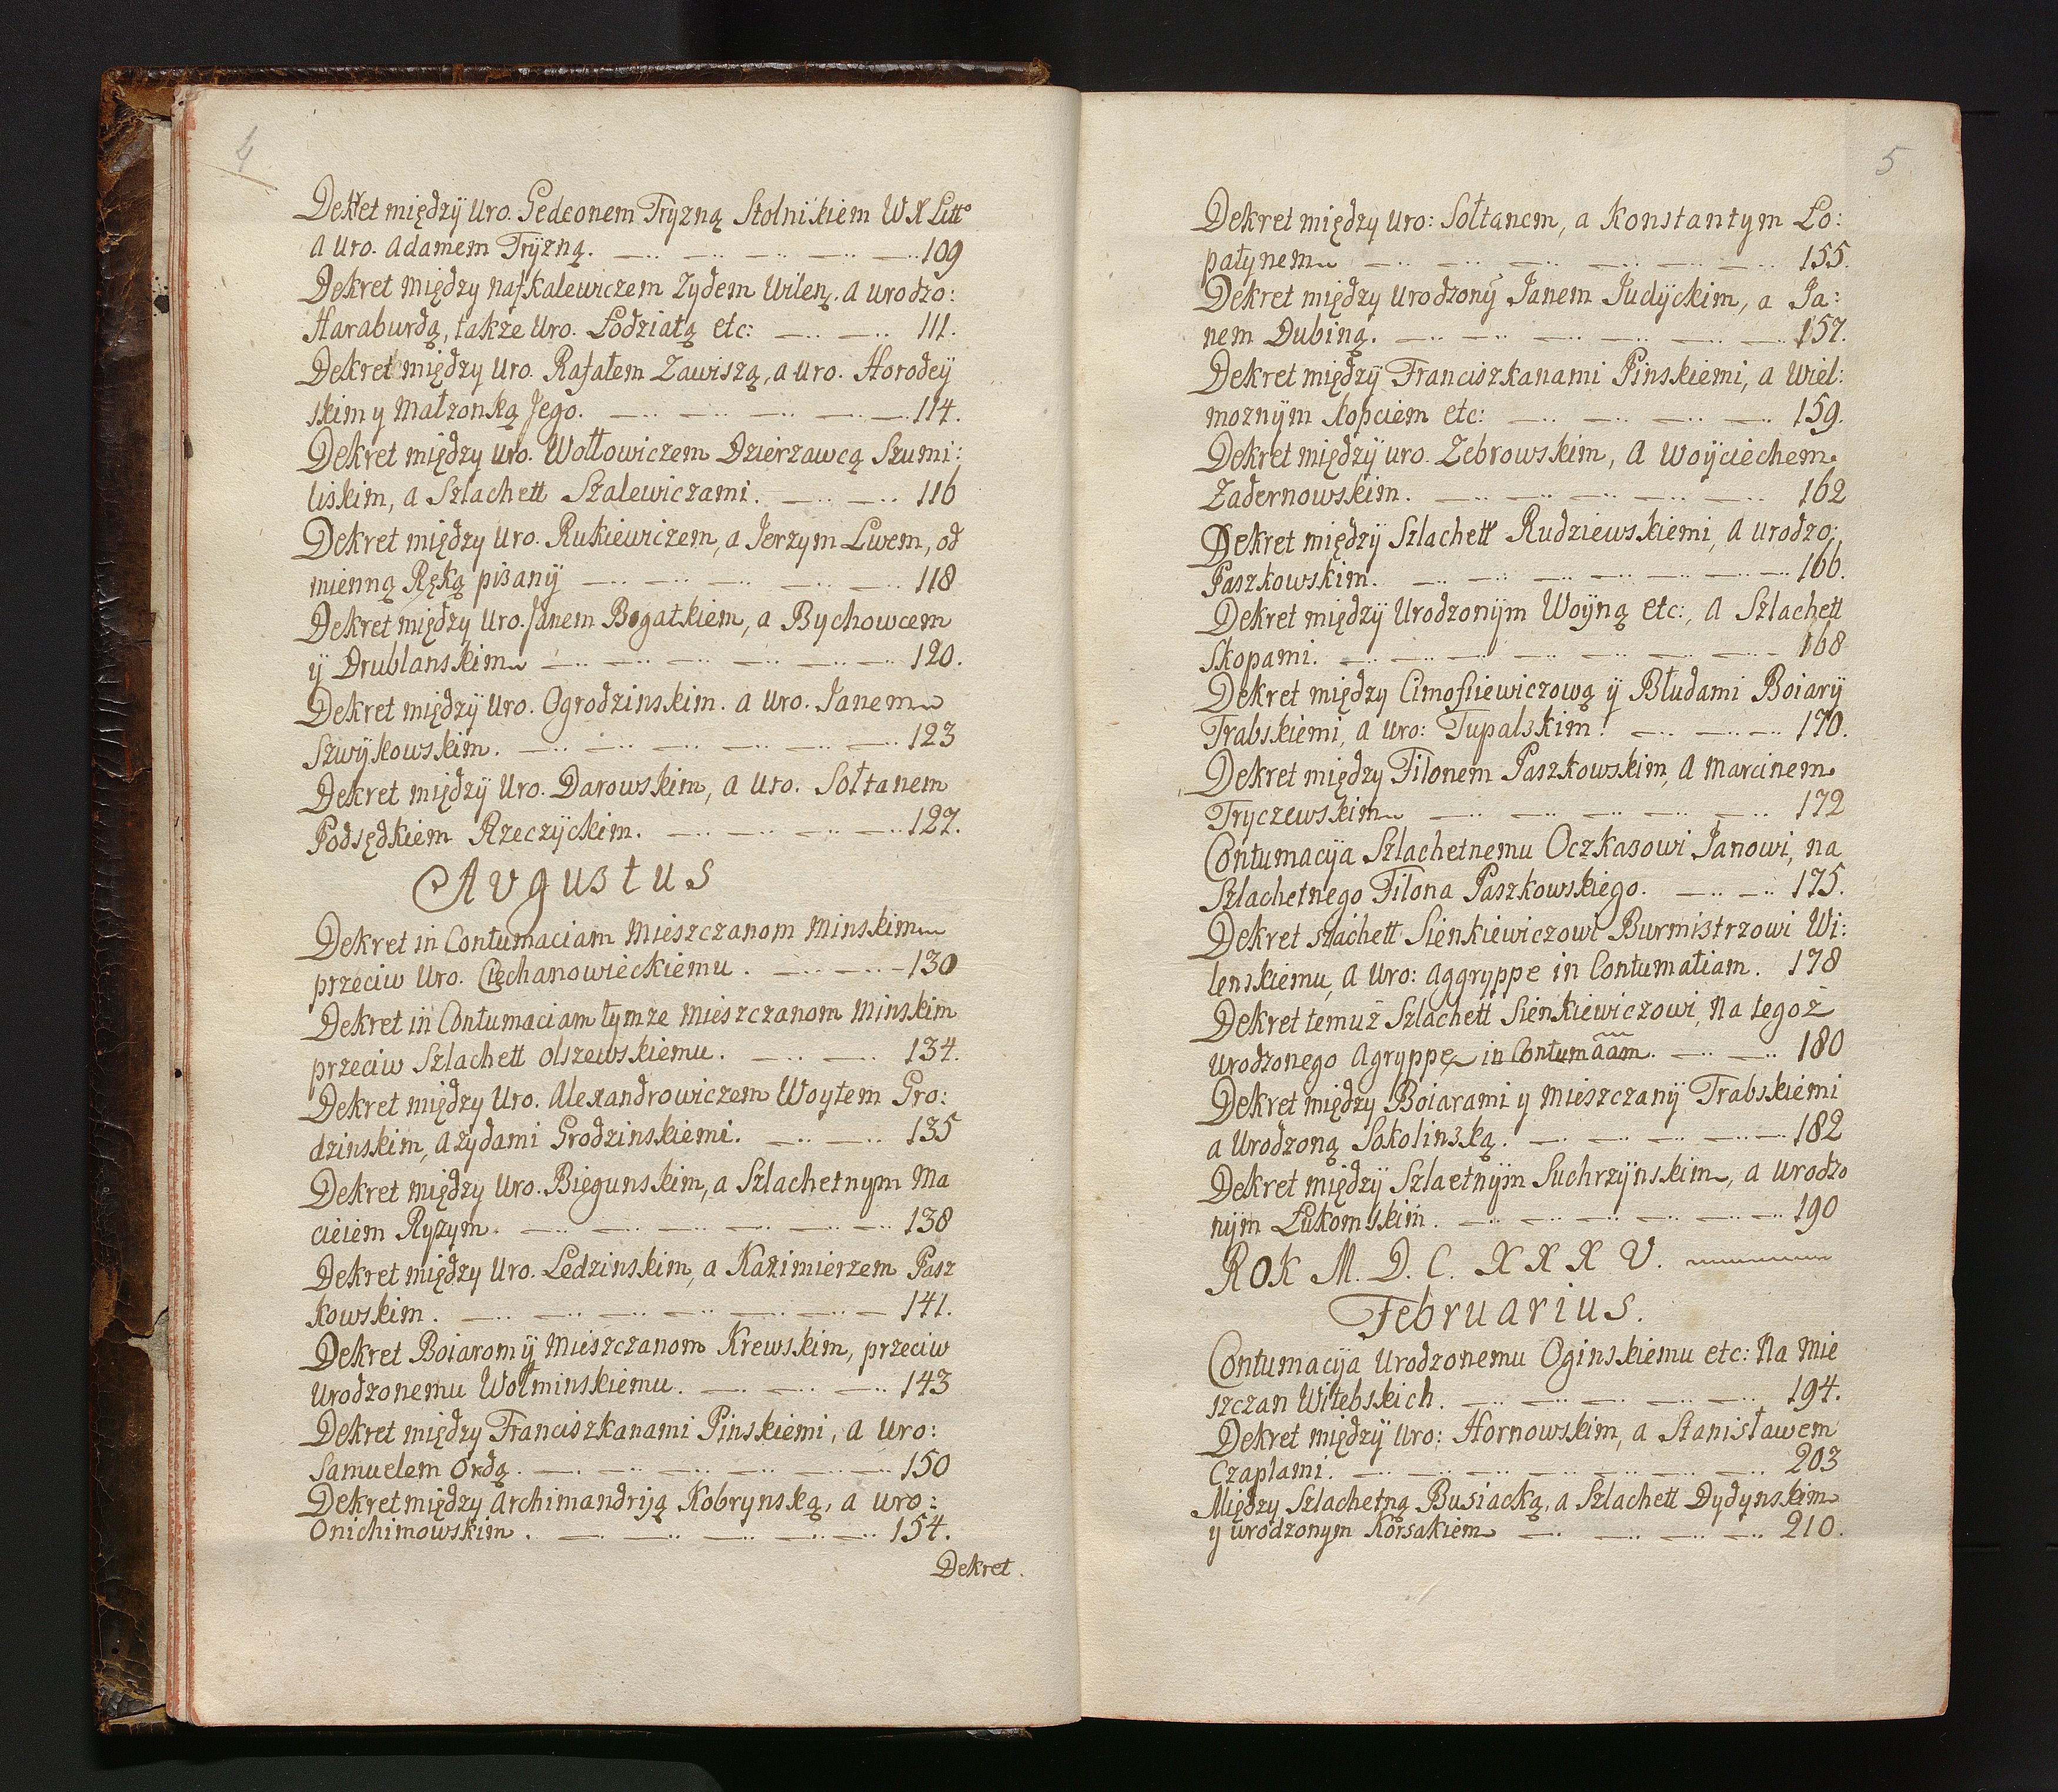 4
Dekret międzÿ Uro. Gedeonem Tryzną Stolnikiem WX Litto
a Uro. Adamem Trÿzną. 109
Dekret między nafkalewiczem Zydem Wilen. a Urodzo:
Haraburdą, także Uro. Łodziatą etc: 111.
Dekret między Uro. Rafałem Zawiszą, a Uro. Horodeÿ
skim y Małzonką Jego. 114.
Dekret między Uro. Wołłowiczem Dzierzawcą Szumi:
liskim, a Szlachett Szalewiczami. 116
Dekret między Uro. Rukiewiczem, a Jerzym Lwem, od
mienną Ręką pisanÿ 118
Dekret między Uro. Janem Bogatkiem, a Bychowcem
ÿ Drublanskim 120.
Dekret międzÿ Uro. Ogrodzinskim. a Uro. Janem
Szwÿkowskim. 123
Dekret międzÿ Uro. Darowskim, a Uro. Sołtanem
Podsędkiem Rzeczÿckim. 127.
Avgustus
Dekret in Contumaciam Mieszczanom Minskim
przeciw Uro. Ciechanowieckiemu. 130
Dekret in Contumaciam tymze Mieszczanom Minskim
przeciw Szlachett Olszewskiemu. 134.
Dekret między Uro. Alexandrowiczem Woytem Gro:
dzinskim, a zydami Grodzinskiemi. 135
Dekret między Uro. Biegunskim, a Szlachetnym Ma
cieiem Ryzym. 138
Dekret między Uro. Ledzinskim, a Kazimierzem Pasz
kowskim. 141.
Dekret Boiarom ÿ Mieszczanom Krewskim, przeciw
Urodzonemu Wołminskiemu. 143
Dekret między Franciszkanami Pinskiemi, a Uro:
Samuelem Ordą. 150
Dekret między Archimandriją Kobrynską, a Uro:
Onichimowskim. 154.
Dekret.
5
Dekret między Uro: Sołtanem, a Konstantym Lo:
patynem 155.
Dekret między Urodzonÿ Janem Judÿckim, a Ja:
nem Dubiną. 157.
Dekret międzÿ Franciszkanami Pinskiemi, a Wiel:
moznÿm Kopciem etc: 159.
Dekret międzÿ uro. Zebrowskim, a Woÿciechem
Zadernowskim. 162
Dekret międzÿ Szlachett Rudziewskiemi, a Urodzo:
Paszkowskim. 166.
Dekret międzÿ Urodzonÿm Woÿną etc:, a Szlachett
Skopami. 168
Dekret między Cimofiiewiczową ÿ Błudami Boiarÿ
Trabskiemi, a Uro: Tupalskim. 170.
Dekret między Filonem Paszkowskim, a Marcinem
Tryczewskim 172
Contumacija Szlachetnemu Oczkasowi Janowi, na
Szlachetnego Filona Paszkowskiego. 175.
Dekret szachett Sienkiewiczowi Burmistrzowi Wi:
lenskiemu, a Uro: Aggryppe in Contumatiam. 178
Dekret temuż Szlachett Sienkiewiczowi, na tegoż
Urodzonego Agryppę in Contumãam. 180
Dekret między Boiarami y Mieszczanÿ Trabskiemi
a Urodzoną Sokolinską. 182
Dekret międzÿ Szlaetnÿm Suchrzÿnskim, a Urodzo
nÿm Łukomskim. 190
ROK M. D. C. X X X V.
Februarius.
Contumacija Urodzonemu Oginskiemu etc: Na Mie
szczan Witebskich. 194.
Dekret międzÿ Uro: Hornowskim, a Stanisławem
Czaplami. 203
Między Szlachetną Busiacką, a Szlachett Dydynskim
y urodzonym Korsakiem 210.